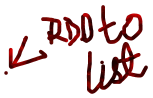 RDD to
list